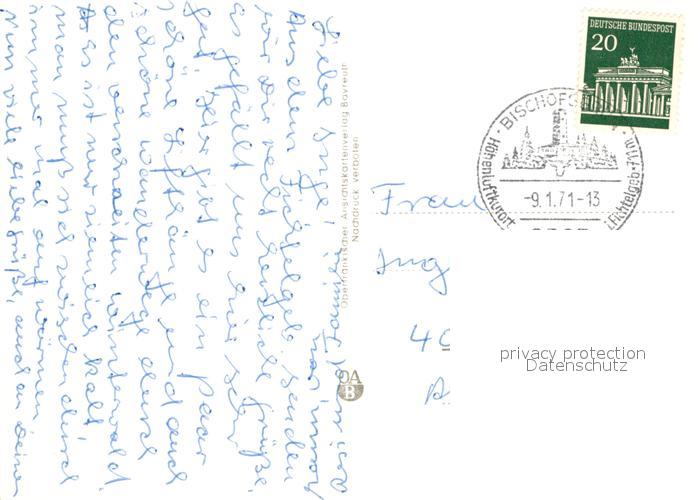 Liebe Inge und Familie!
Aus dem Fichtelgeb. senden
wir Dir recht herzliche Grüße.
es gefällt uns hier sehr
hier gibt es ein paar
schöne und auch
schöne Wanderwege durch
den verschneiten Winterwald.
es ist nur ziemlich kalt
man muß sich zwischen durch
immer mal aufwärmen
Nun viele liebe Grüße, auch an Deine
Oberfränkischer Ansichtskartenverlag Bayreuth
Nachdruck verboten
OA
B
DEUTSCHE BUNDESPOST
20
BISCHOFSGRÜN
Höhenluftkurort
i.Fichtelgeb.
-9.1.71-13
Frau
Ing
40
privacy protection
Datenschutz